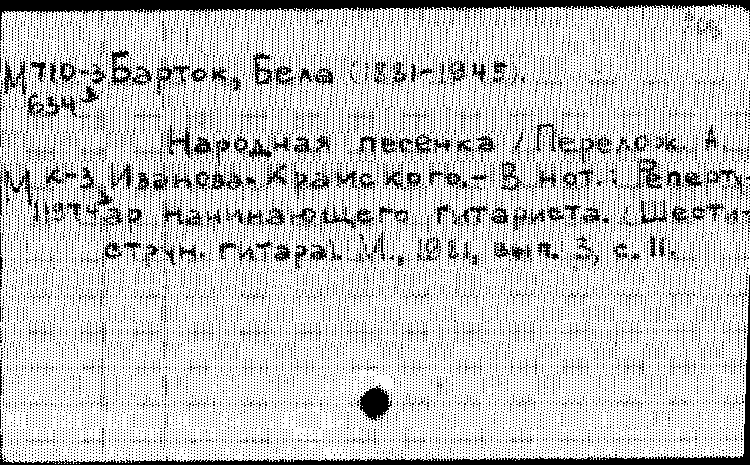 М 710-3 Барток, Бела (1881-1945).
634
Народная песенка / Перелож. А.
М К-3 Иванова-Крамского. - В нот.: Реперту-
1197 ар начинающего гитариста. (Шести-
струн. гитара). М., 1981, вып. 3, с. 11.